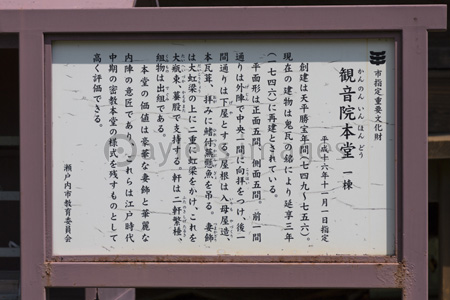 市指定重要文化財
かんのんいんほんどう
観音院本堂 一棟
平成十六年十一月一日指定
創建は天平勝宝年間(七四九～七五六)。
現在の建物は鬼瓦の銘により延享三年
(一七四六)に再建とされている。
平面形は正面五間、側面五間。前一間
通りは外陣で中央一間に向拝をつけ、後一
間通りは下屋とする。屋根は入母屋造、
本瓦葺、拝みに鰭付蕪懸魚を吊る。妻飾
は大虹梁の上に二重に虹梁をかけ、これを
大瓶束、蟇股で支持する。軒は二軒繁棰、
組物は出組である。
本堂の価値は豪華な妻飾と華麗な
内陣の意匠であり、これらは江戸時代
中期の密教本堂の様式を残すものとして
高く評価できる。
瀬戸内市教育委員会